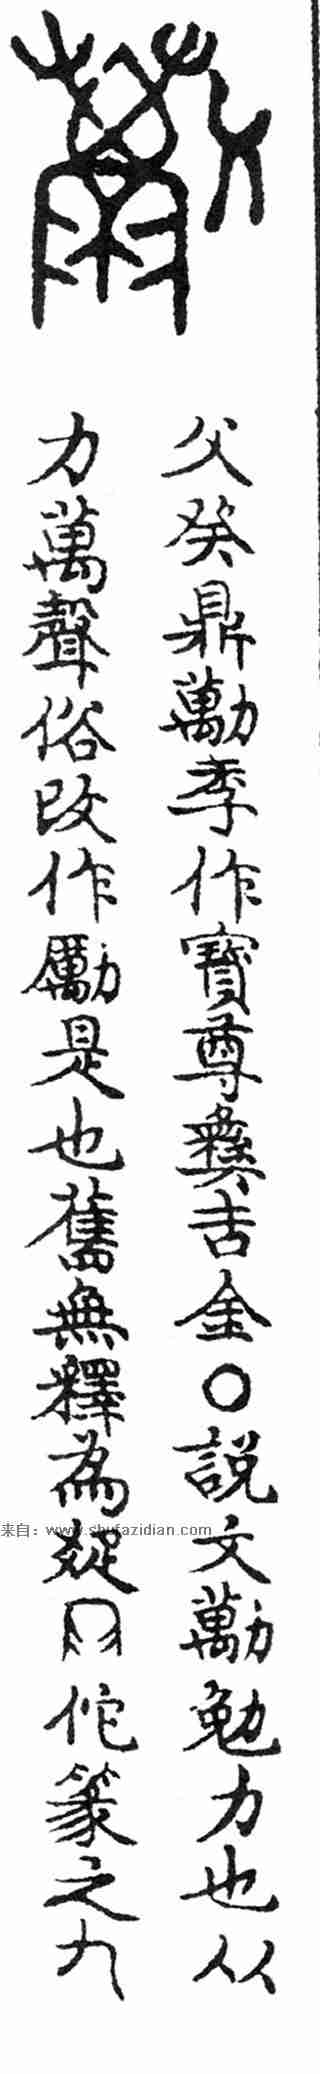 父癸鼎勱季作寶尊彝吉金〇說文勱勉力也从
力萬聲俗改作勵是也舊無釋為佗篆之九
来自：www.shufazidian.com